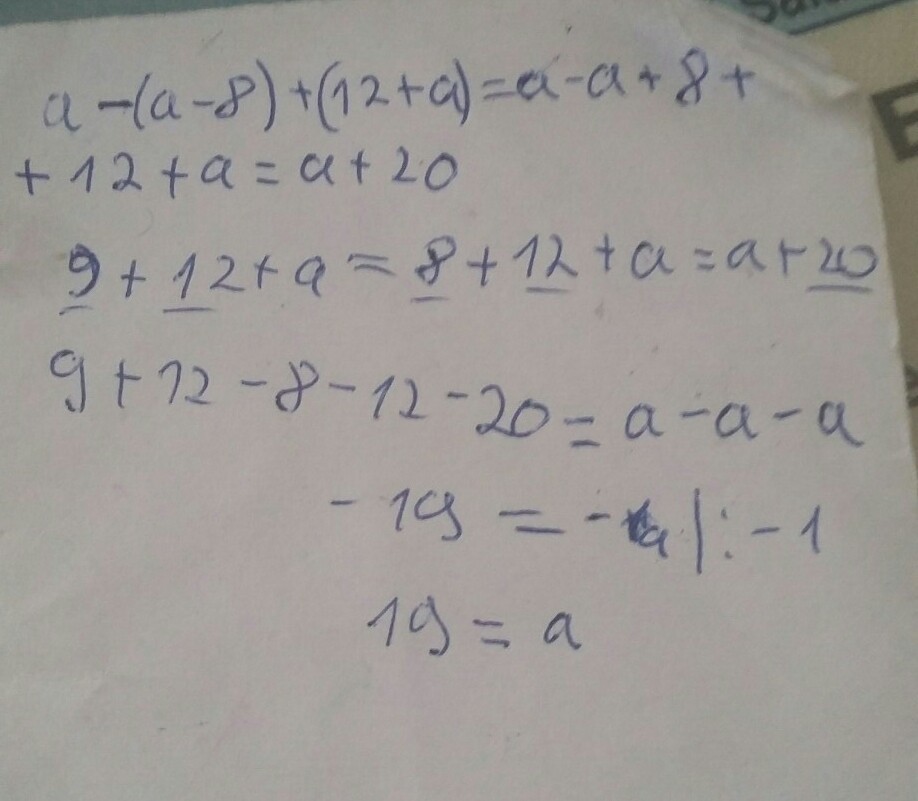 a-(a-8)+(12+a)=a-a+8+
+12+a=a+20
9+12+a=8+12+a=a+20
9+12-8-12-20=a-a-a
-19=-a|:-1
19=a